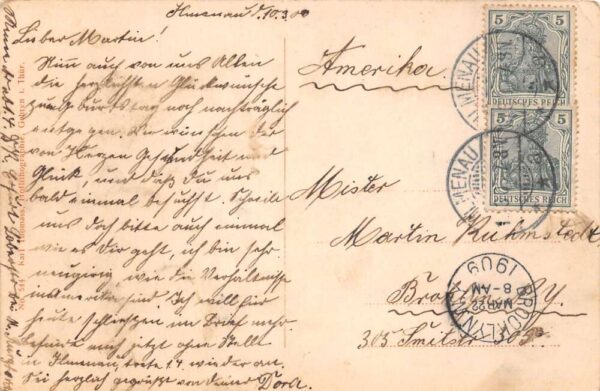 Ilmenau d. 10.3.09
Lieber Martin!
Nun auch von uns Allen
die herzlichsten Glückwünsche
zum Geburtstag noch nachträglich
entgegen. Wir wünschen Dir
von Herzen Gesundheit und
Glück, und daß Du uns
bald einmal besuchst. Schreibe
uns doch bitte auch einmal
wie es Dir geht, ich bin sehr
neugirig, wie die Verhältnisse
in Amerika sind. Ich will für
heute schließen im Brief mehr.
jetzt ohne Stelle
in Ilmenau, trete 14 wieder an.
Sei herzlich gegrüßt von Deiner Dora.
Amerika.
Mister
Martin Kuhmstedt
Brooklyn N.Y.
305
5 5
DEUTSCHES REICH
5 5
DEUTSCHES REICH
ILMENAU
ILMENAU
BROOKLYN, N.Y.
MAR 22
8-AM
1909
No. 545 Kar
Gotha i. Thür.